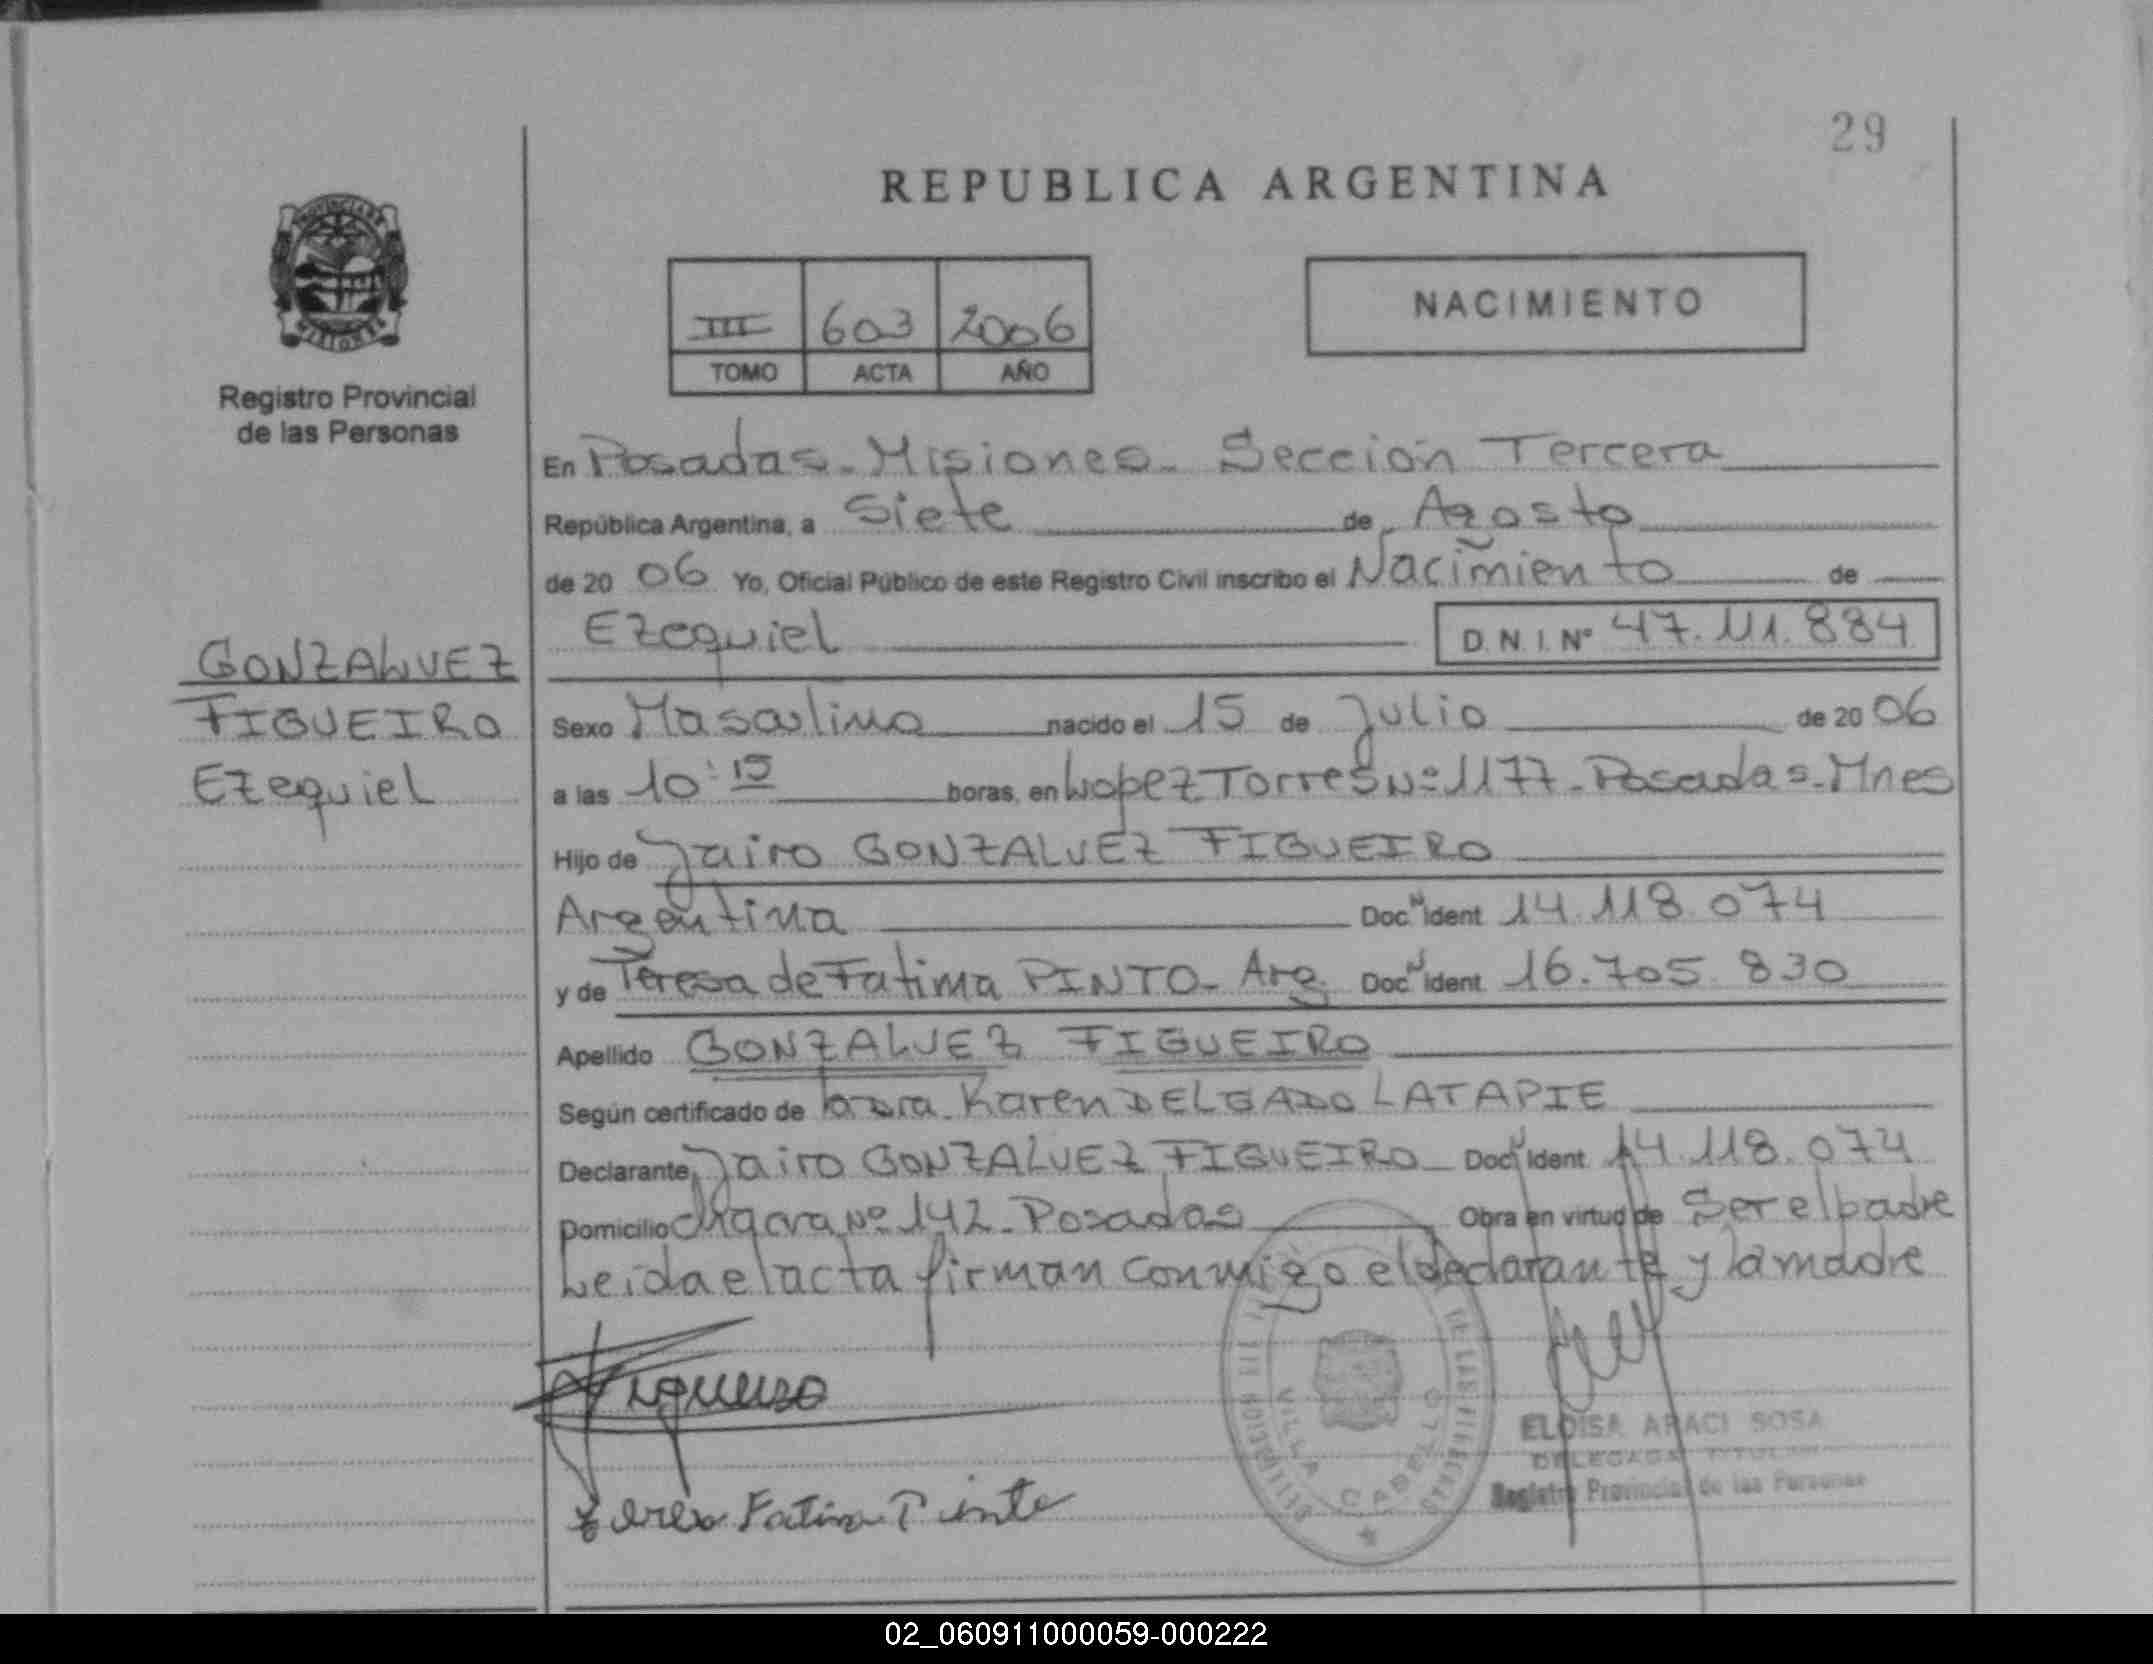 29
REPUBLICA ARGENTINA
PROVINCIA DE
MISIONES
Registro Provincial
de las Personas
III 603 2006
TOMO ACTA AÑO
NACIMIENTO
En Posadas - Misiones - Sección Tercera
República Argentina, a Siete de Agosto
de 20 06 Yo, Oficial Público de este Registro Civil inscribo el Nacimiento de
Ezequiel D.N.I. Nº 47.111.884
GONZALVEZ
FIGUEIRO
Ezequiel
Sexo Masculino nacido el 15 de Julio de 20 06
a las 10:15 horas, en Lopez Torres Nº 1177 - Posadas - Mnes
Hijo de Jairo GONZALVEZ FIGUEIRO
Argentina Doc Ident 14.118.074
y de Teresa de Fatima PINTO - Arg. Doc Ident 16.705.830
Apellido GONZALVEZ FIGUEIRO
Según certificado de la Dra. Karen DELGADO LATAPIE
Declarante Jairo GONZALVEZ FIGUEIRO Doc Ident 14.118.074
Domicilio Nº 142 - Posadas Obra en virtud de Ser el padre
Leida el acta firman conmigo el declarante y la madre
Figueiro
Teresa Fatima Pinto
VILLA CABELLO
ELOISA ARACI SOSA
DELEGADA TITULAR
Registro Provincial de las Personas
02_060911000059-000222